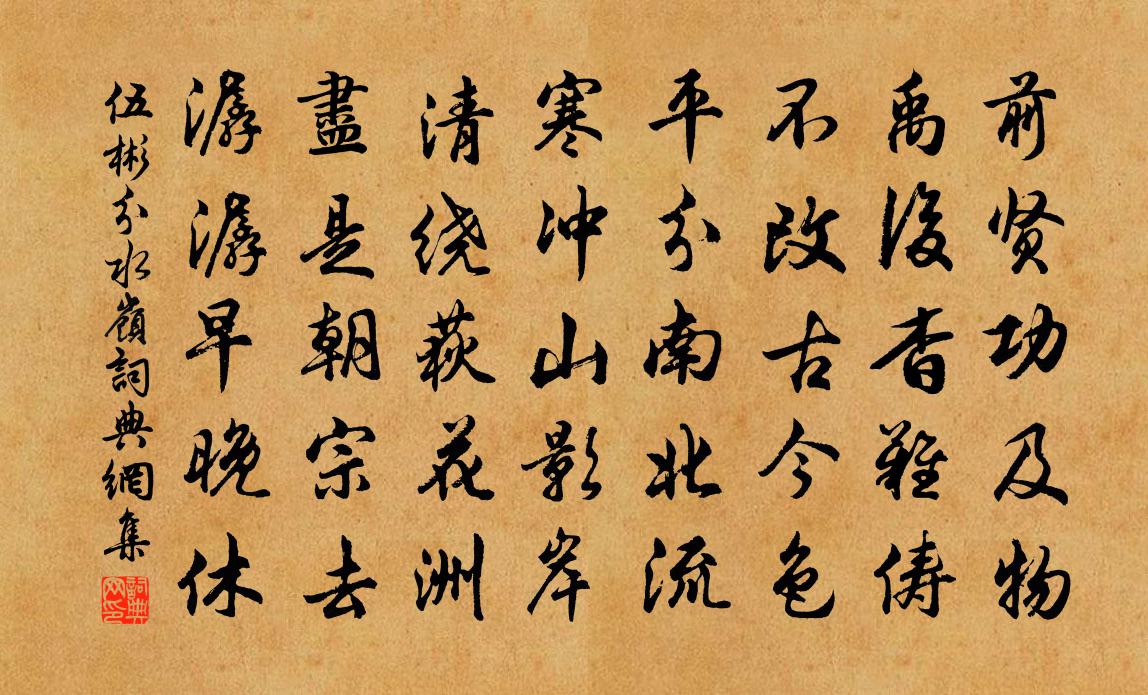 前贤功及物
禹後杳難俦
不改古今色
平分南北流
寒冲山影岸
清绕荻花洲
盡是朝宗去
潺潺早晚休
伍彬分水嶺詞典網集
詞典网印